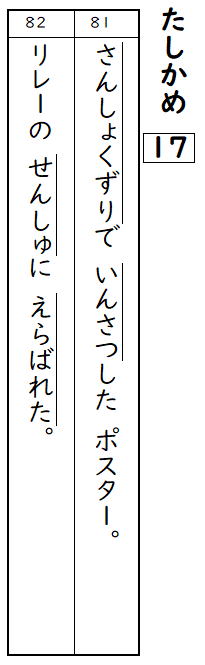 たしかめ
17
81
さんしょくずりで いんさつした ポスター。
82
リレーの せんしゅに えらばれた。